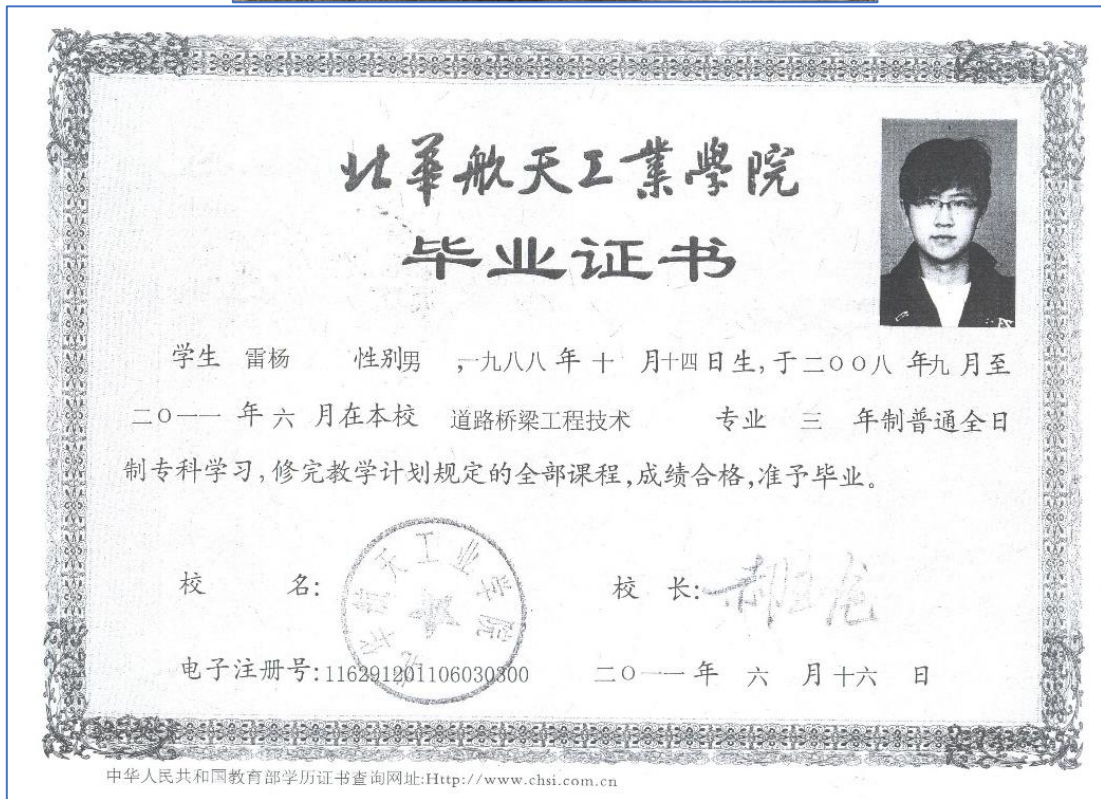 北華航天工業學院
毕业证书
学生 雷杨 性别男 ,一九八八年十月十四日生,于二〇〇八年九月至
二〇一一年六月在本校 道路桥梁工程技术 专业 三 年制普通全日
制专科学习,修完教学计划规定的全部课程,成绩合格,准予毕业。
校 名: 校 长:
北华航天工业学院
电子注册号:116291201106030300 二〇一一年 六 月十六 日
中华人民共和国教育部学历证书查询网址:Http://www.chsi.com.cn